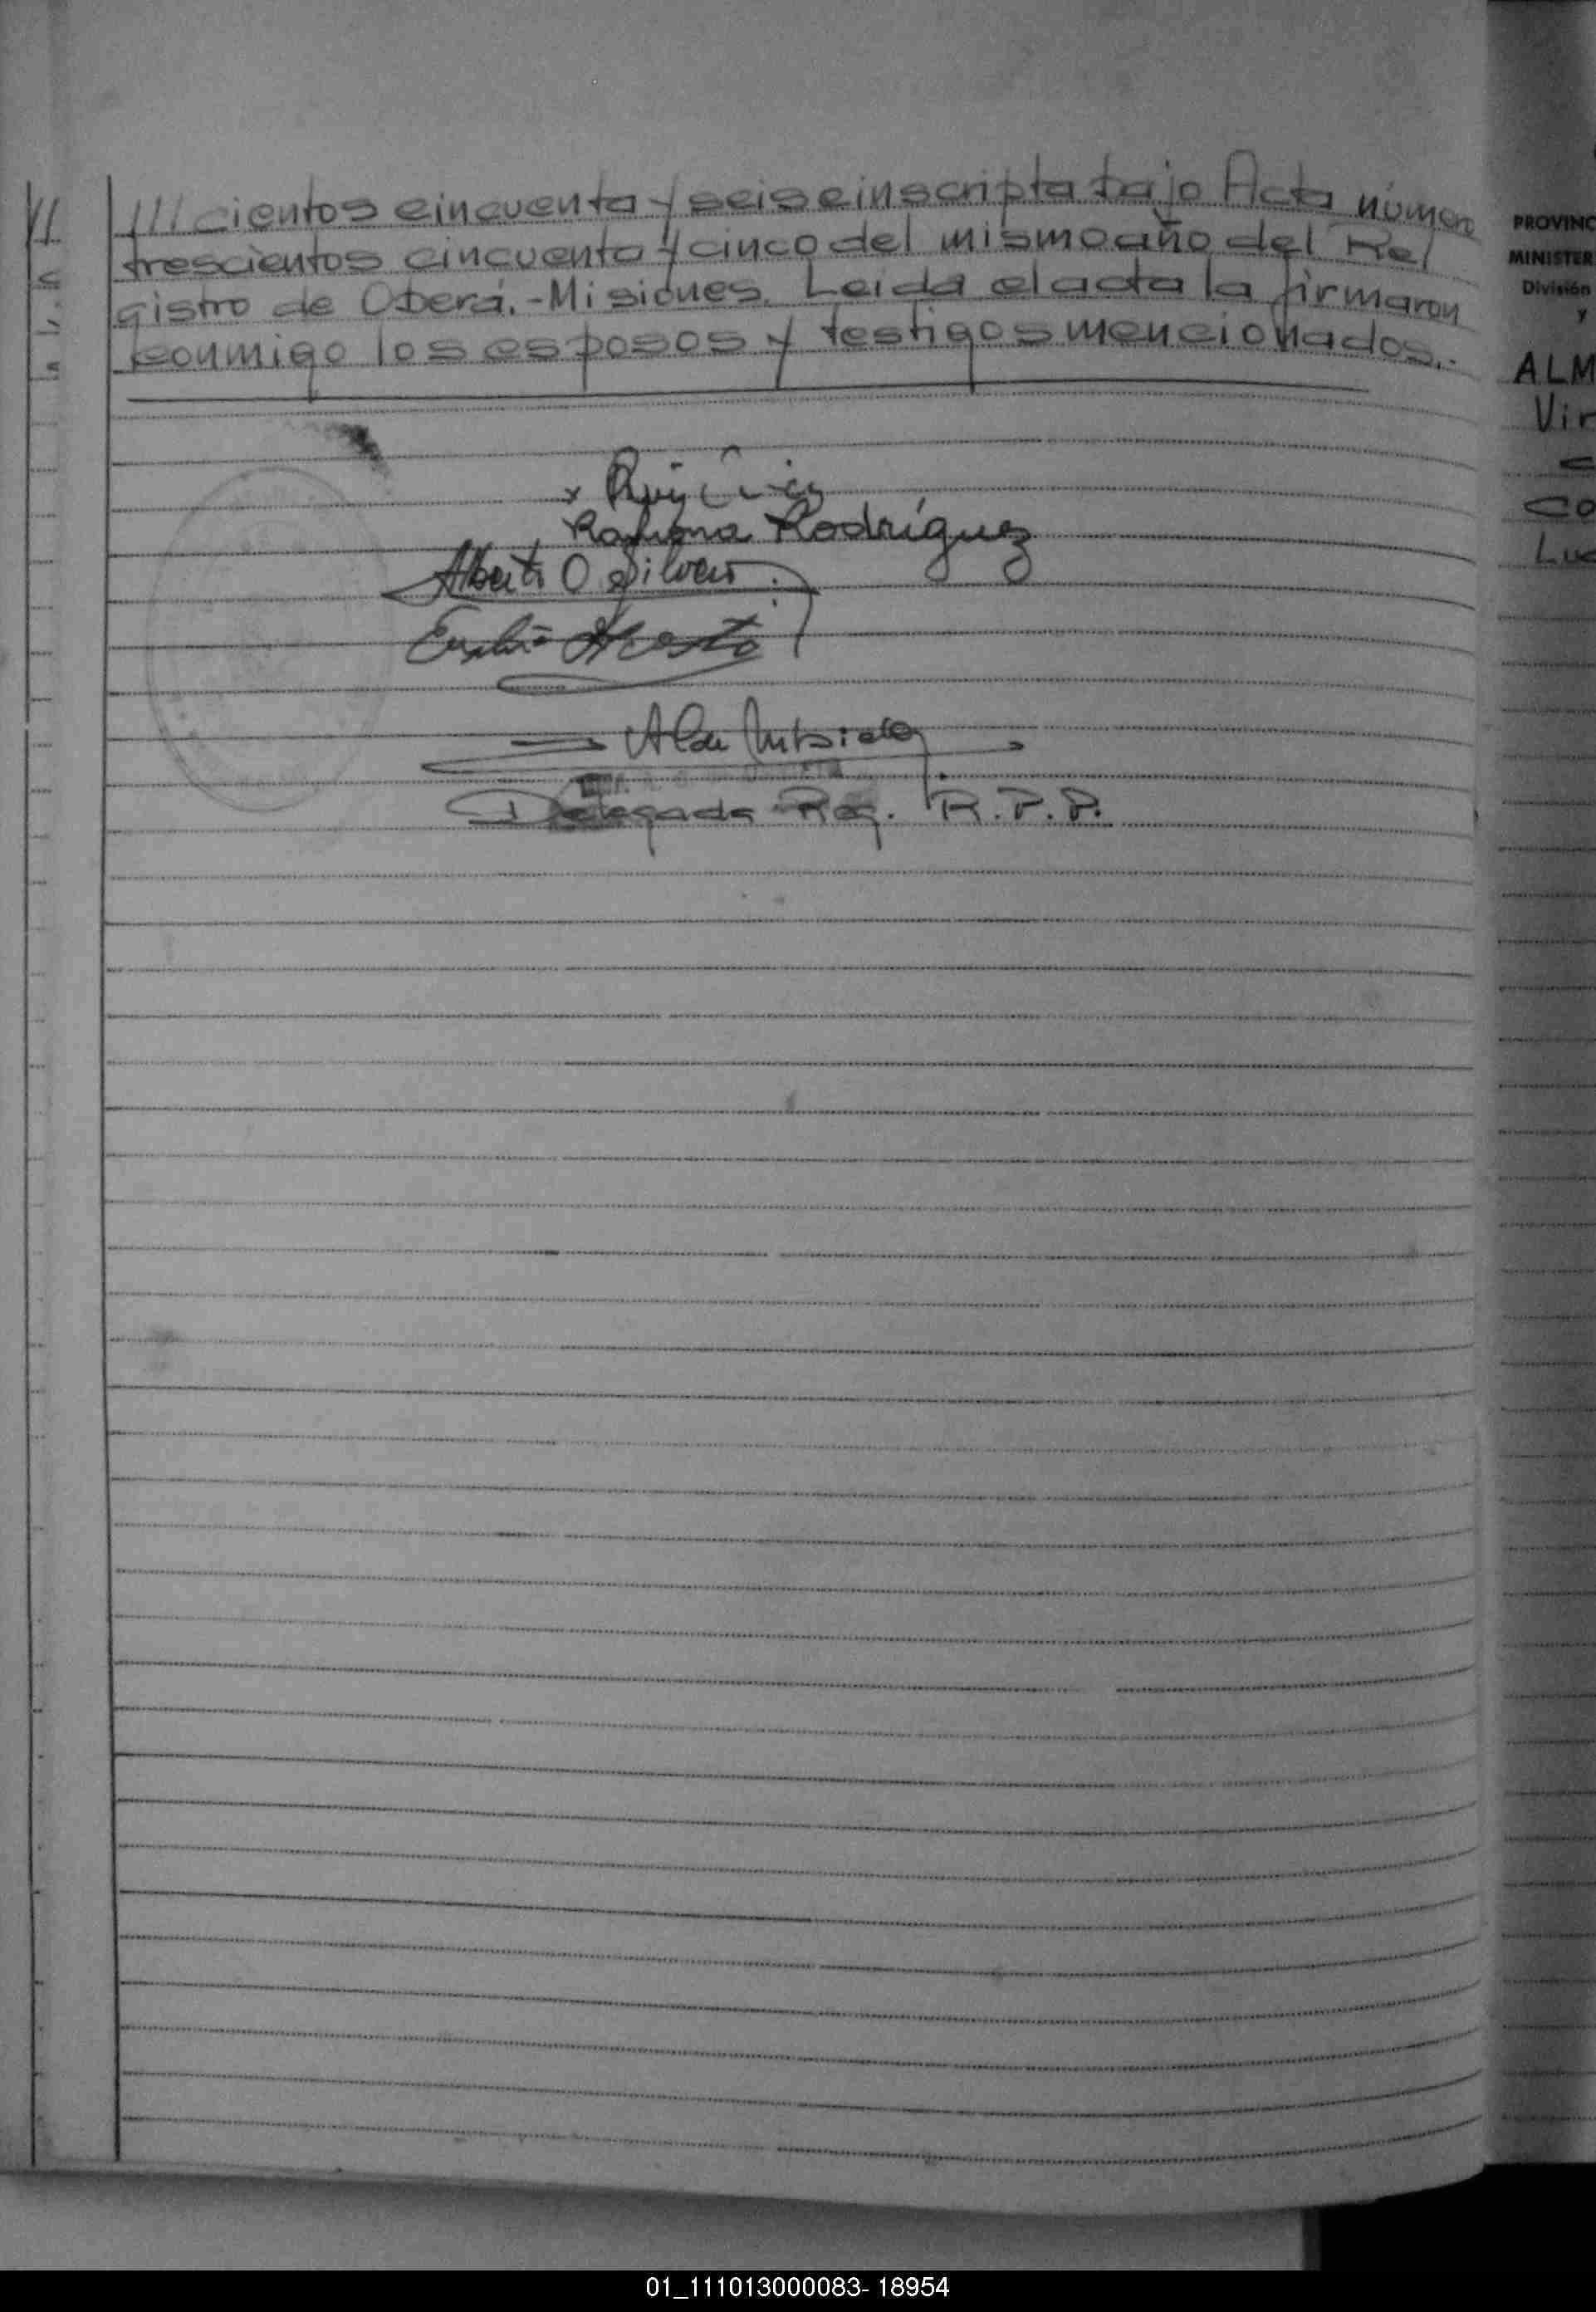 ///cientos cincuenta y seis e inscripta bajo Acta número
trescientos cincuenta y cinco del mismo año del Re/
gistro de Oberá.-Misiones. Leida el acta la firmaron
conmigo los esposos y testigos mencionados.-
x
Ramona Rodríguez
Alberto O. Silvero
Acosta
Delegada Reg. R.P.P.
PROVINC
MINISTER
División
y
ALM
Vir
CO
Lu
01_111013000083- 18954